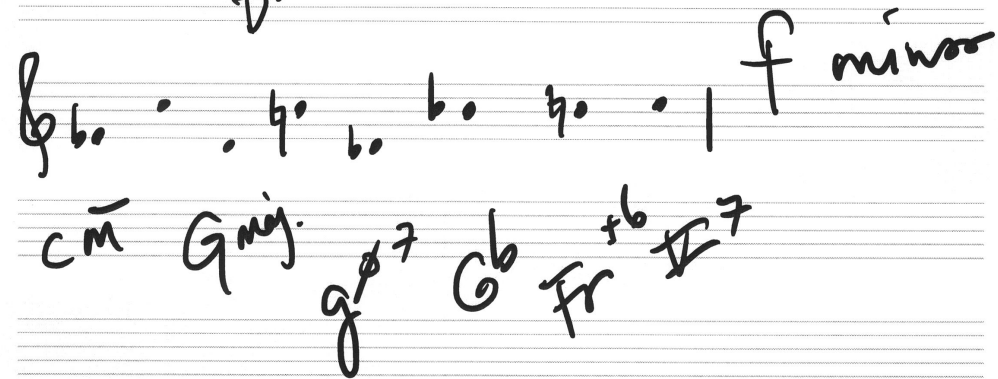 f minor
c m̄ Gmaj. g⌀7 G♭ Fr+6 V7